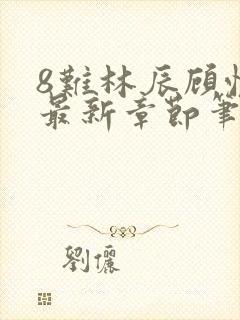 8難林辰顾
最新章節筆
劉儷